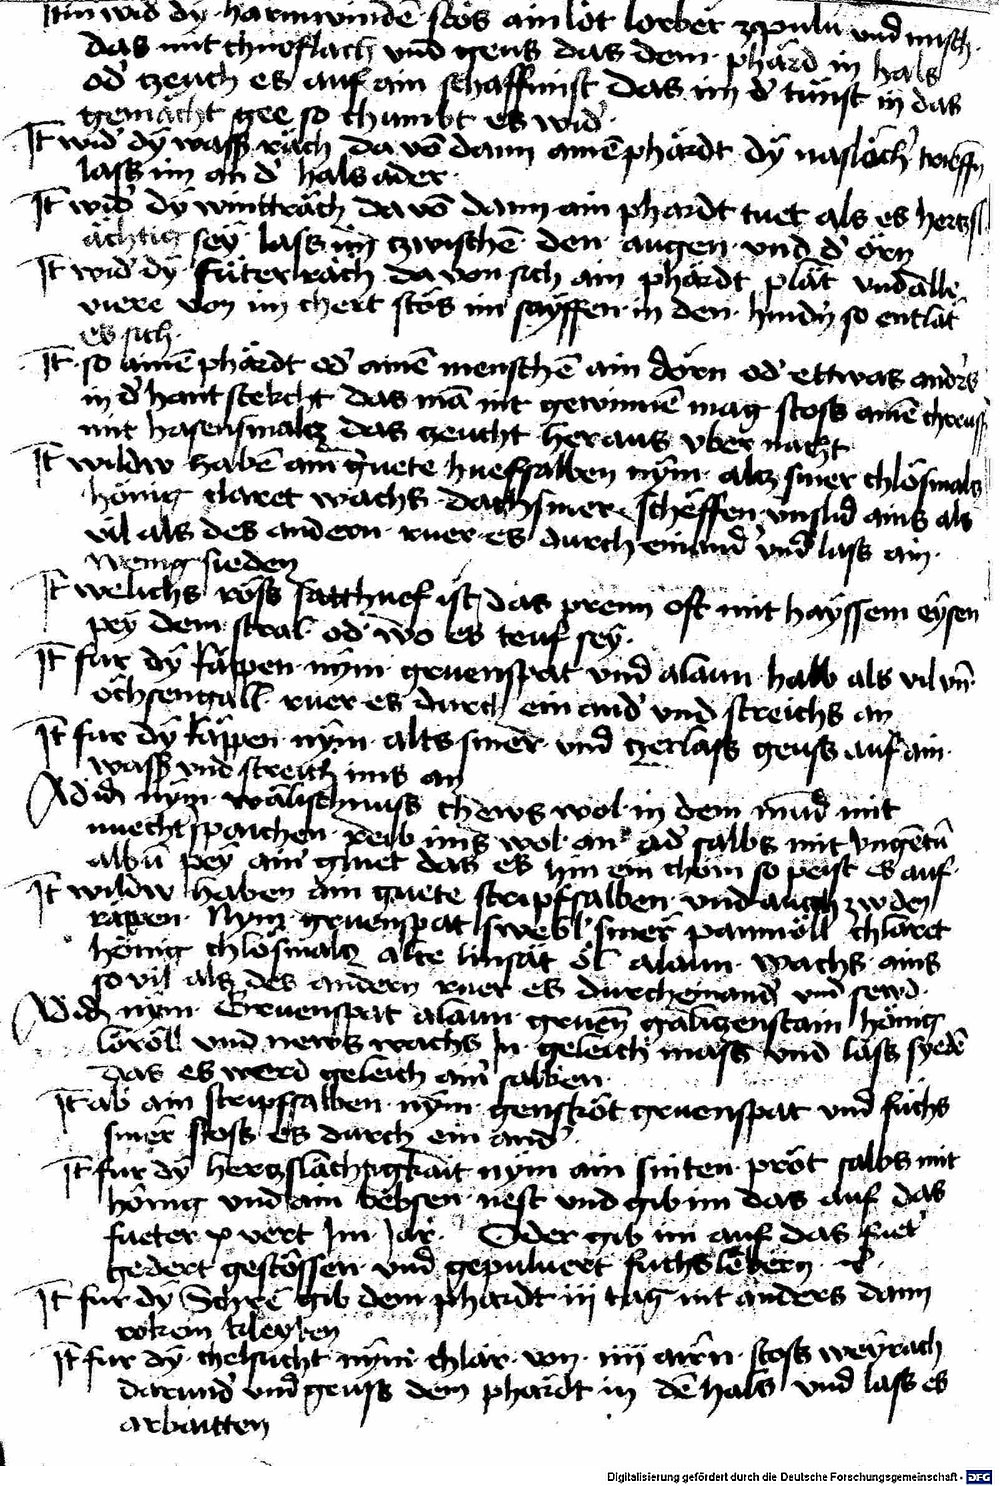 Itm wid dÿ harmwindē stös ain lot lorber zpulu und misch
das mit chnoflach und geus das dem phärd in hals
od' zeuch es auf ain schaffmist das im d' tunst in das
gemächt gee so chumbt es wid'
It wid' dÿ wass räch da vō dann ainē phärdt dÿ naslöch' trieffn
lass im an d' hals ader
It wid' dÿ wintträch da vō dann ain phardt tuet als es hertzsl
ächtig seÿ lass im zwischē den augen und d' örn
It wid' dÿ füterräch da von sich ain phärdt plät und alle
viere von im chert stös im saÿffen in den hindn so entlät
es sich
It so ainē phärdt od' ainē menschē ain dorn od' ettwas anders
in d' haut stekcht das mā nit gewinnē mag stoss ainē chreuss
mit hasensmaltz das zeucht heraus uber nacht
It wildw habē ain guete huefsalben nÿm altz smer chlösmalz
hönig claret wachs dachsmer scheffen unslid ains als
vil als des andern ruer es durch einand' und lass ain
wenig sieden
It welichs röss satthuef ist das prenn oft mit haÿssem eÿsen
peÿ dem stral od' wo es teuf seÿ
It fur dÿ käppen nÿm gruenspat und alaun halb als vil un
öchsengall ruer es durch ein and' und streichs an
It fur dÿ käppen nÿm alts smer und zerlass geuss auf ain
wass und streich ims an
Adid nÿm wälischnuss chews wol in dem mund mit
nuecht spaichen reib ims wol an ad' salbs mit ungētū
albū peÿ ain' gluet das es hin ein chöm so peist es auf
It wildw haben ain guete stripfsalben und auch zw den
rappen Nym gruenspat swebl smer paumöll chlaret
hönig chlosmalz alte linsät öl alaun wachs ains
so vil als des andern ruer es durcheinand' und sewd
Adid nÿm Gruenspat alaun gruen galitzenstain hönig
loröll und news wachs in geleich mass und lass syedē
das es werd geleich ain' salben
It ab ain stripfsalben nÿm genskot gruenspat und fuchs
smer stoss es durch ein and'
It fur dÿ hertzslächtigkait nÿm ain sniten pröt salbs mit
hönig und ain bebsen nest und gib im das auf das
fueter x vert Im Jar Oder gib im auf das fuet'
gedert gestössen und gepulvert fuchslebern
It fur dÿ Schre gib dem phardt iij tag nit anders dann
rokein kleyben
It fur dÿ chelsucht nÿm chlar von iiij airn stoss weÿrach
darund' und geuss dem phärdt in dē hals und lass es
arbaitten
Digitalisierung gefördert durch die Deutsche Forschungsgemeinschaft - DFG